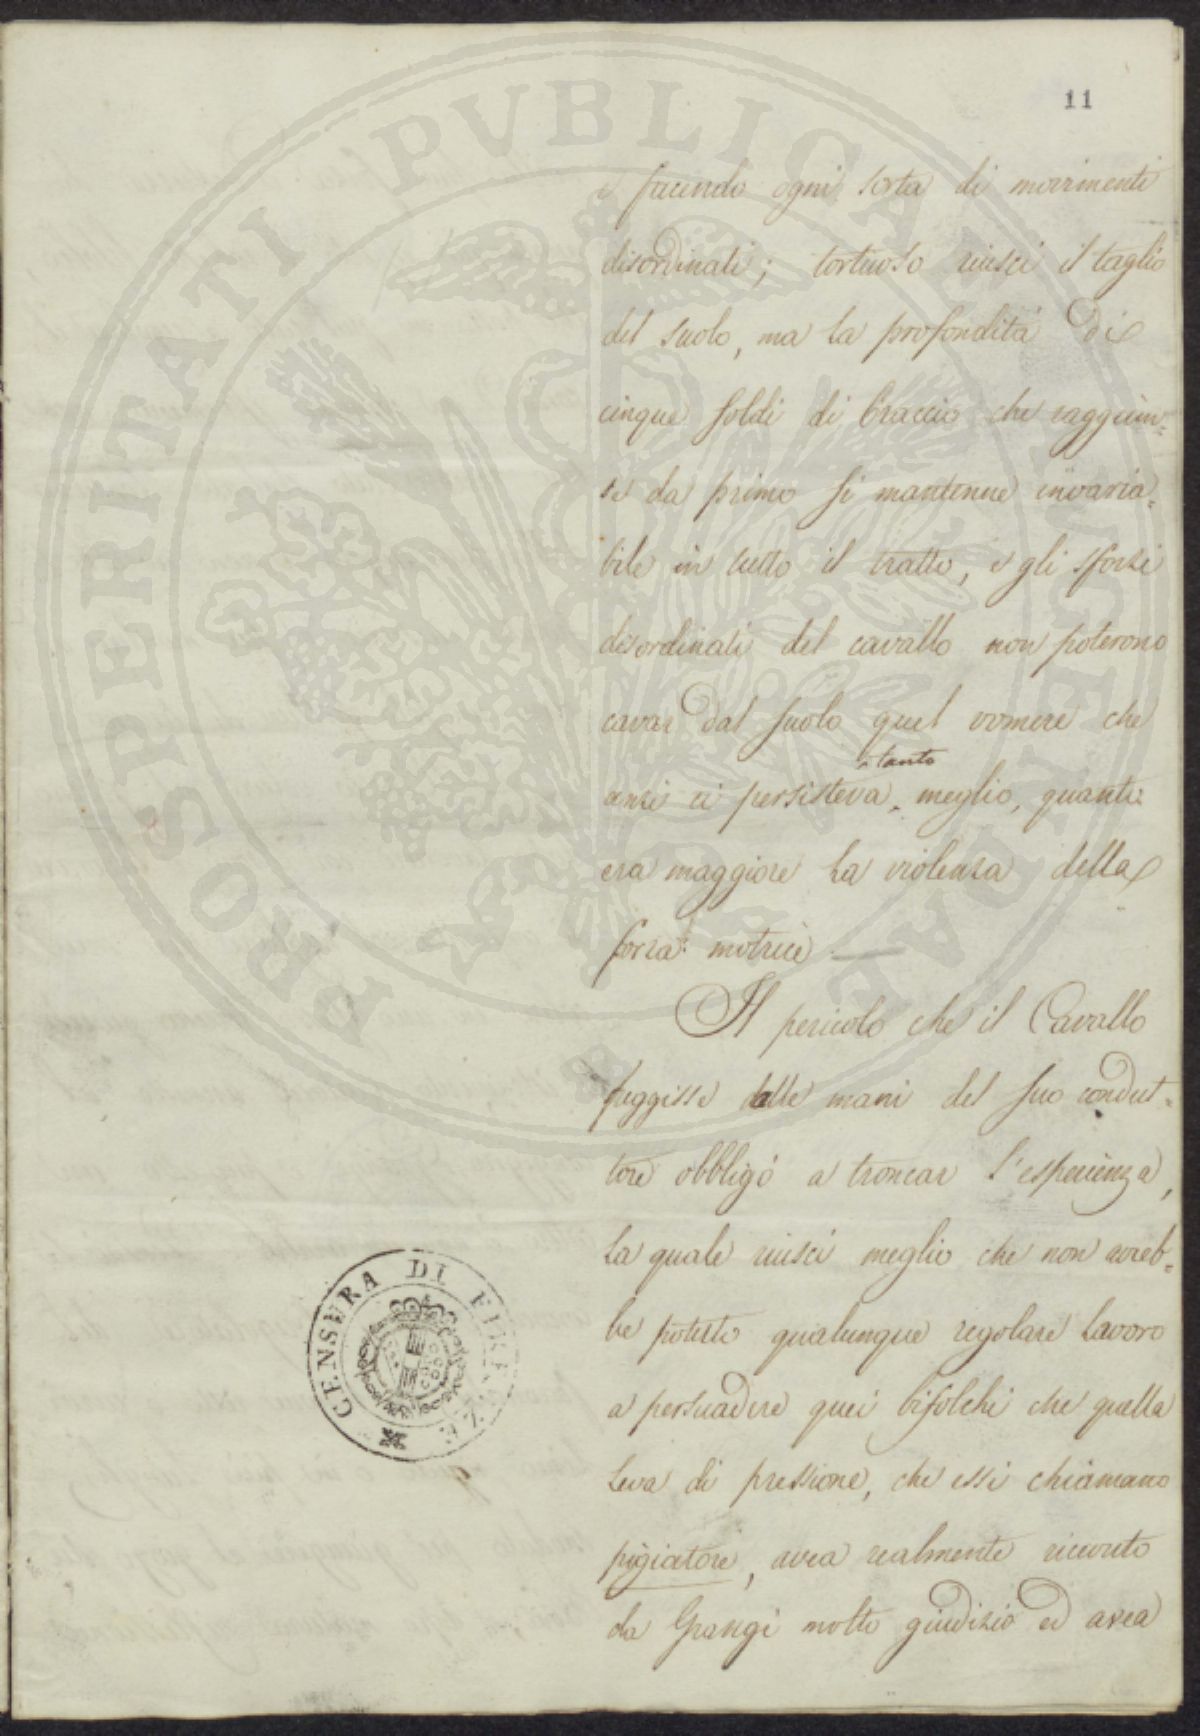 11
e facendo ogni sorta di movimenti
disordinati; tortuoso riuscì il taglio
del suolo, ma la profondità di
cinque soldi di braccio che raggiun=
se da primo si mantenne invaria=
bile in tutto il tratto, e gli sforzi
disordinati del cavallo non poterono
cavar dal suolo quel vomere che
tanto
anzi ci persisteva meglio, quanto
era maggiore la violenza della
forza motrice —
Il pericolo che il Cavallo
fuggisse dalle mani del suo condut=
tore obbligò a troncar l'esperienza,
la quale riuscì meglio che non avreb=
be potuto qualunque regolare lavoro
a persuadere quei bifolchi che quella
leva di pressione, che essi chiamano
pigiatore, avea realmente ricevuto
da Grangé molto giudizio ed avea
CENSURA DI FIRENZE
PROSPERITATI PVBLICAE AVGENDAE